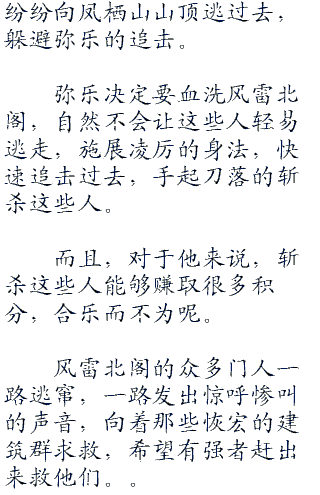 纷纷向凤栖山山顶逃过去，
躲避弥乐的追击。
弥乐决定要血洗风雷北
阁，自然不会让这些人轻易
逃走，施展凌厉的身法，快
速追击过去，手起刀落的斩
杀这些人。
而且，对于他来说，斩
杀这些人能够赚取很多积
分，合乐而不为呢。
风雷北阁的众多门人一
路逃窜，一路发出惊呼惨叫
的声音，向着那些恢宏的建
筑群求救，希望有强者赶出
来救他们。。